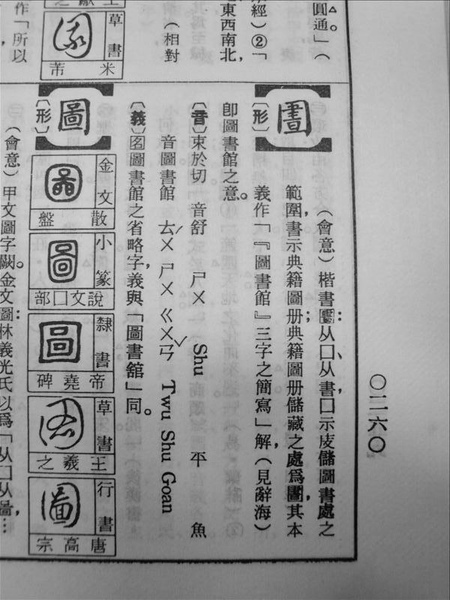 〇二六〇
圓通」(
經)②「
東西南北,
(相對
草書
米芾
作「所以
圕
〔形〕
(會意)楷書圕:从囗、从書,囗示庋儲圖書處之
範圍,書示典籍圖册;典籍圖册儲藏之處爲圕,其本
義作「『圖書館』三字之簡寫」解(見辭海)
卽圖書館之意。
〔音〕束於切 音舒 ㄕㄨ Shu 平 魚
音圖書館 ㄊㄨˊ ㄕㄨ ㄍㄨㄢˇ Twu Shu Goan
〔義〕名圖書館之省略字義與「圖書舘」同。
圖
〔形〕
金文
散盤
小篆
說文囗部
隸書
帝堯碑
草書
王羲之
行書
唐高宗
(會意)甲文圖字闕。金文圖林義光氏以爲「从囗从啚…